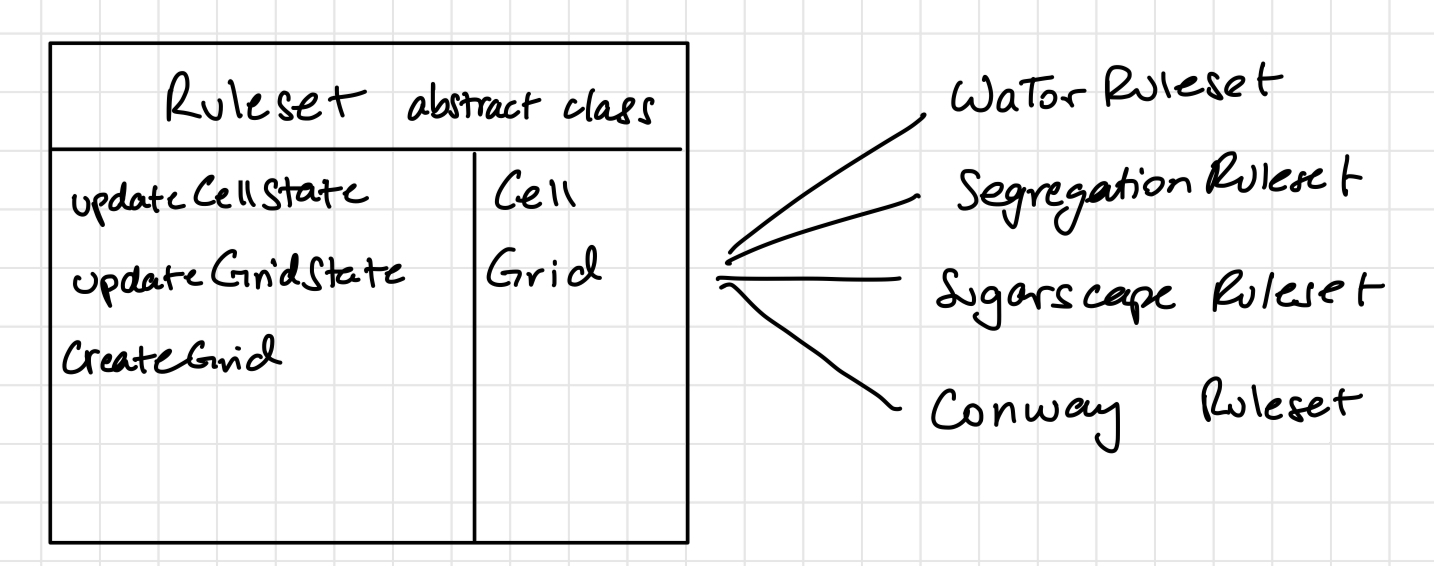 Ruleset abstract class
updateCellState
Cell
updateGridState
Grid
CreateGrid
WaTor Ruleset
Segregation Ruleset
Sugarscape Ruleset
Conway Ruleset